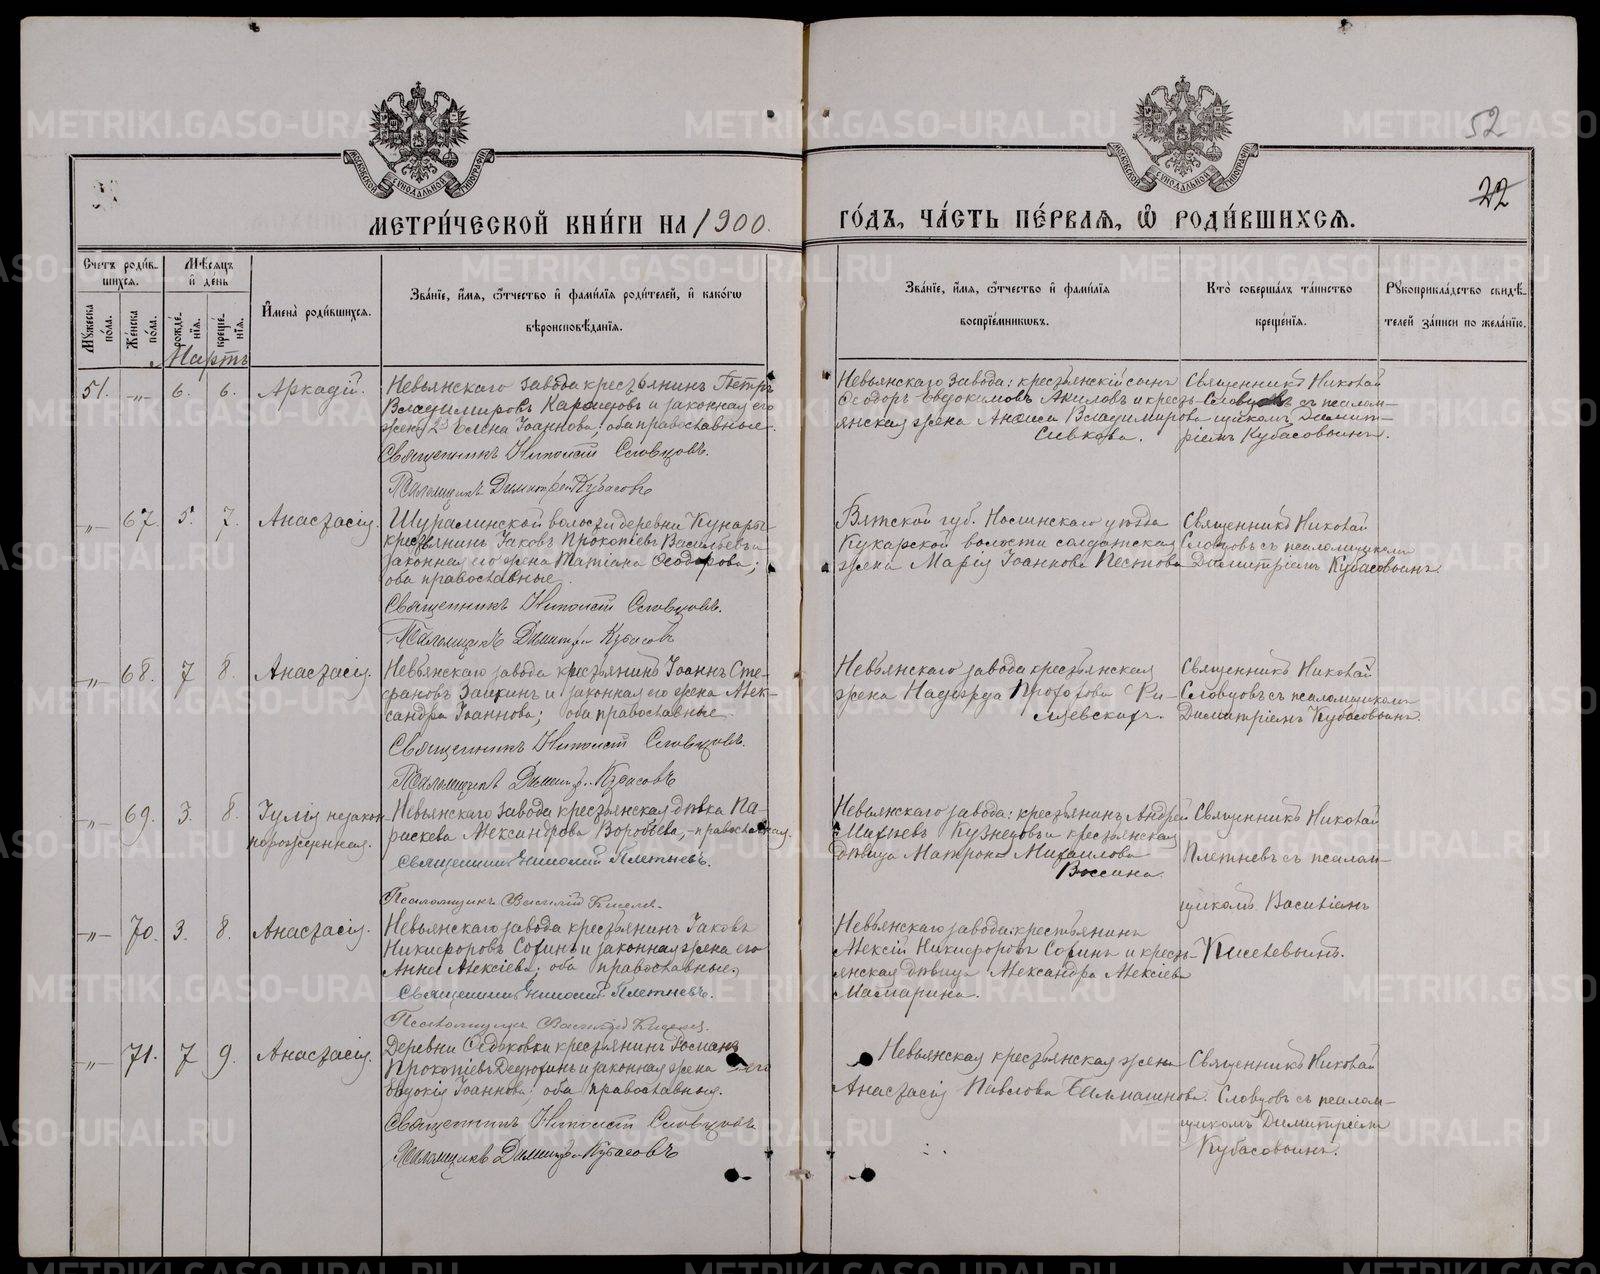 52
22
МЕТРИ́ЧЕСКОЙ КНИ́ГИ НА 1900.
ГО́ДЪ, ЧА́СТЬ ПЕ́РВАЯ, Ѡ҆ РОДИ́ВШИХСЯ.
Счетъ роди́в-
шихся.
Мѣ́сяцъ
и҆ де́нь
Мꙋ́жеска по́ла.
Же́нска по́ла.
рожде́нїя.
креще́нїя.
И҆мена̀ роди́вшихся.
Зва́нїе, и҆́мя, ѻ҆́тчество и҆ фами́лїя роди́телей, и҆ како́гѡ
вѣроисповѣ́данїя.
Зва́нїе, и҆́мя, ѻ҆́тчество и҆ фами́лїя
воспрїе́мниковъ.
Кто̀ соверша́лъ та́инство
креще́нїя.
Рꙋкоприкла́дство свидѣ́-
телей за́писи по жела́нїю.
Мартъ
51. -„- 6. 6. Аркадій.
Невьянскаго завода крестьянинъ Петръ
Владиміровъ и законная его
жена Елена Іоаннова; оба православные.
Священникъ Николай Словцовъ.
Псаломщикъ Димитрій Кубасовъ
Невьянскаго Завода: крестьянскій сынъ
Ѳеодоръ Евдокимовъ Акиловъ и кресть-
янская жена Владимірова
Сивкова.
Священникъ Николай
Словцовъ съ псалом-
щикомъ Димит-
ріемъ Кубасовымъ.
-„- 67. 5. 7. Анастасія.
Шуралинской волости деревни Кунары
крестьянинъ Іаковъ Прокопіевъ Васильевъ и
законная его жена Татіана Ѳеодорова;
оба православные.
Священникъ Николай Словцовъ.
Псаломщикъ Димитрій Кубасовъ
Вятской губ. Нолинскаго уѣзда
Кукарской волости солдатская
жена Марія Іоаннова Пестова
Священникъ Николай
Словцовъ съ псаломщикомъ
Димитріемъ Кубасовымъ.
-„- 68. 7 8. Анастасія.
Невьянскаго завода крестьянинъ Іоаннъ Сте-
фановъ Заикинъ и законная его жена Алек-
сандра Іоаннова; оба православные.
Священникъ Николай Словцовъ.
Псаломщикъ Димитрій Кубасовъ
Невьянскаго завода крестьянская
жена Надежда
Священникъ Николай
Словцовъ съ псаломщикомъ
Димитріемъ Кубасовымъ.
-„- 69. 3. 8. Іулія незакон-
норожденная.
Невьянскаго Завода крестьянская дѣвка Па-
раскева Александрова Воробьева, православная.
Священникъ Николай Плетневъ.
Псаломщикъ Василій Киселевъ.
Невьянскаго завода: крестьянинъ Андрей
Кузнецовъ и крестьянская
дѣвица Матрона Михаилова
Священникъ Николай
Плетневъ съ псалом-
щикомъ Василіемъ
Киселевымъ.
-„- 70. 3. 8. Анастасія.
Невьянскаго завода крестьянинъ Іаковъ
Никифоровъ Софинъ и законная жена его
Анна Алексіева; оба православные.
Священникъ Николай Плетневъ.
Псаломщикъ Василій Киселевъ.
Невьянскаго завода: крестьянинъ
Алексій Никифоровъ Софинъ и кресть-
янская дѣвица Александра Алексіева
Мамарина.
-„- 71. 7 9. Анастасія.
Деревни Ѳедьковки крестьянинъ
Прокопіевъ и законная жена его
Евдокія Іоаннова, оба православныя.
Священникъ Николай Словцовъ.
Псаломщикъ Димитрій Кубасовъ
Невьянская крестьянская жена
Анастасія Павлова
Священникъ Николай
Словцовъ съ псалом-
щикомъ Димитріемъ
Кубасовымъ.
METRIKI.GASO-URAL.RU